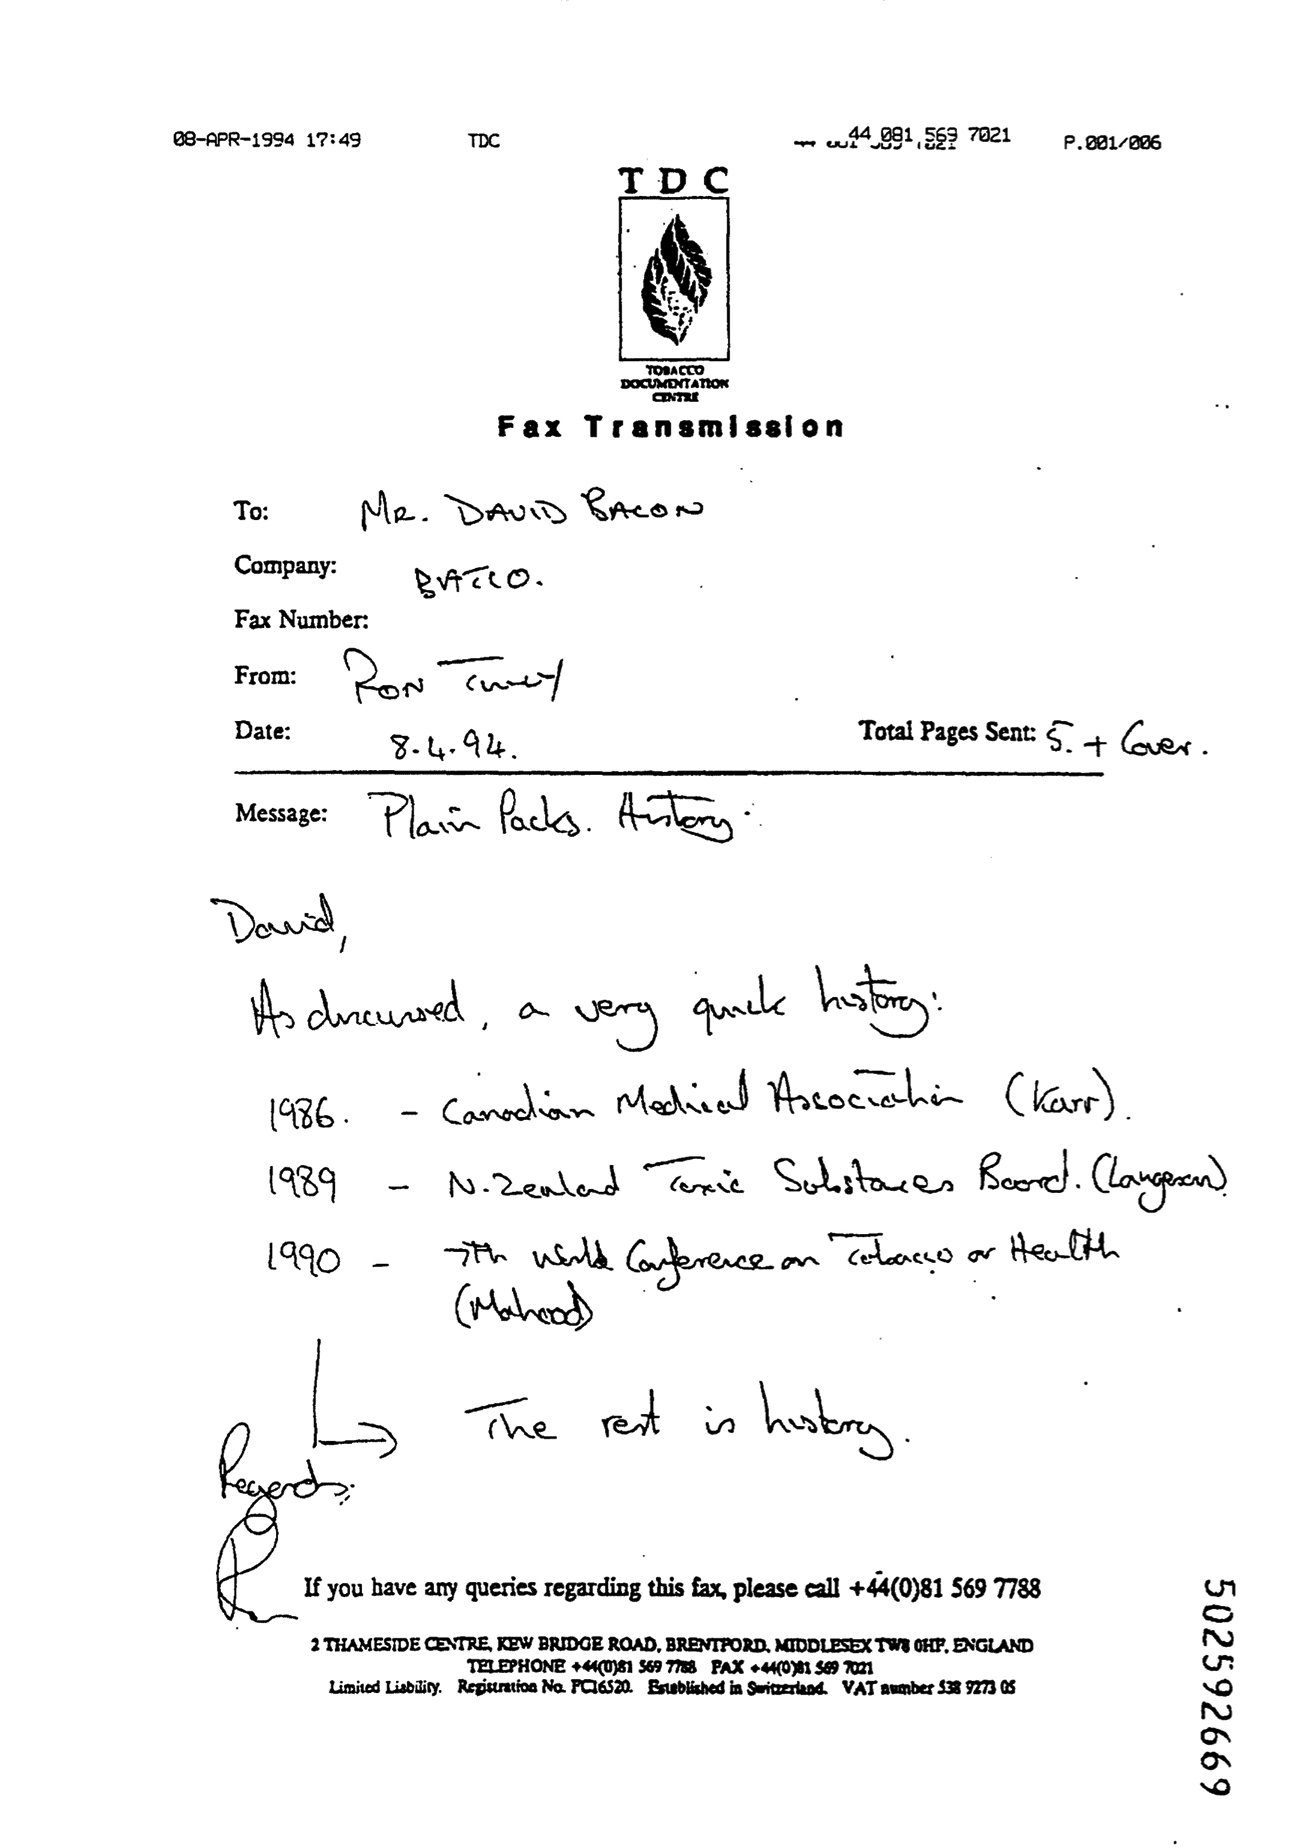 08-APR-1994 17:49 TDC 44 081 569 7021 P.001/006
TDC
TOBACCO
DOCUMENTATION
CENTRE
Fax Transmission
To: MR. DAVID BACON
Company: BATCO.
Fax Number:
From: RON Tully
Date: 8.4.94. Total Pages Sent: 5. + Cover.
Message: Plain Packs. History.
David,
As discussed, a very quick history:
1986. - Canadian Medical Association (Karr).
1989 - N. Zealand Toxic Substances Board. (Laugesen)
1990 - 7th World Conference on Tobacco or Health
(Mahood)
The rest is history.
Regards,
Ron
If you have any queries regarding this fax, please call +44(0)81 569 7788
2 THAMESIDE CENTRE, KEW BRIDGE ROAD, BRENTFORD, MIDDLESEX TW8 0HF, ENGLAND
TELEPHONE +44(0)81 569 7788 FAX +44(0)81 569 7021
Limited Liability. Registration No. FC16520. Established in Switzerland. VAT number 538 9273 05
502592669